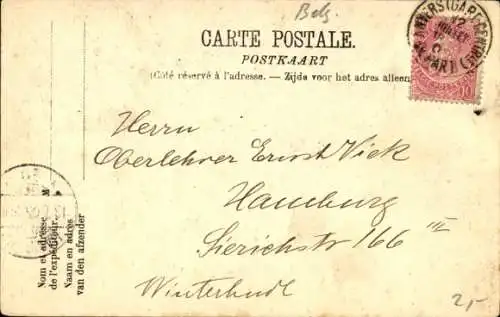 Belg.
CARTE POSTALE.
POSTKAART
(Côté réservé à l'adresse. — Zijde voor het adres alleen
ANVERS (GARE CENTR
12
JUILLET
DEPART
10
Herrn
Oberlehrer Ernst Vick
Hamburg
Sierichstr 166 III
Winterhude
Nom et adresse
de l'expéditeur.
Naam en adres
van den afzender
2,-